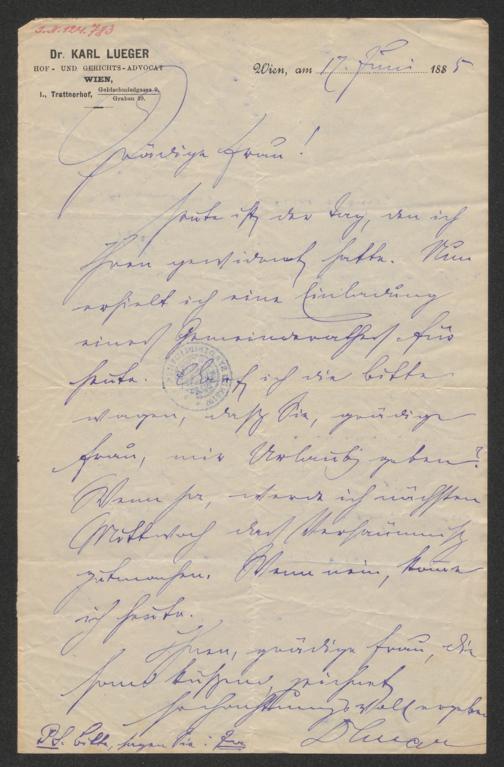 J.N. 124.783
Dr. KARL LUEGER
HOF- UND GERICHTS-ADVOCAT
WIEN,
I., Trattnerhof, Goldschmiedgasse 9,
Graben 29.
Wien, am 17. Juni 1885
Gnädige Frau!
Heute ist der Tag, den ich
Ihnen gewidmet hatte. Nun
erhielt ich eine Einladung
eines Gemeinderathes für
heute. Darf ich die Bitte
wagen, dass Sie, gnädige
Frau, mir Urlaub geben?
Wenn ja, werde ich nächsten
Mittwoch das Versäumniss
gutmachen. Wenn nein, komme
ich heute.
Ihnen, gnädige Frau, die
Hand küssend, zeichnet
hochachtungsvoll ergeben
DrLueger
PS. Bitte, sagen Sie: Ja